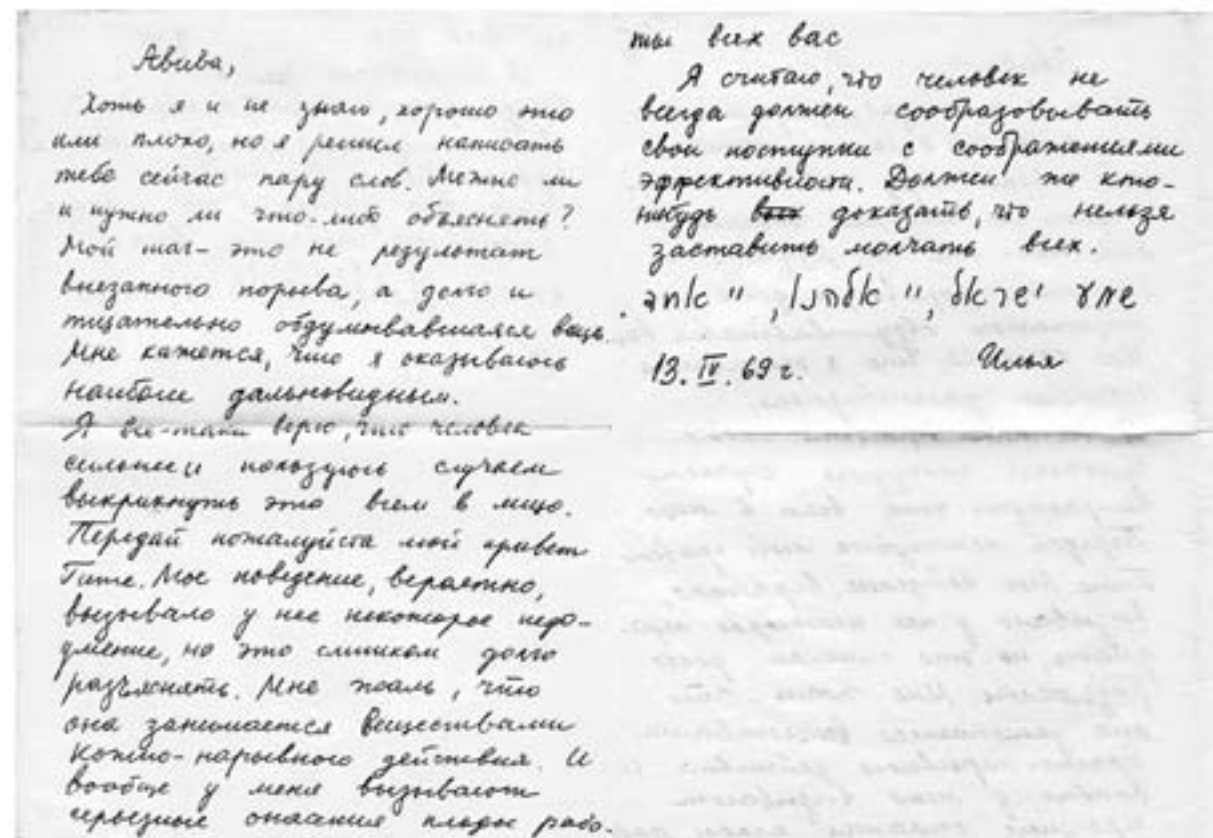 Авива,
Хоть я и не знаю, хорошо это
или плохо, но я решил написать
тебе сейчас пару слов. Можно ли
и нужно ли что-либо объяснять?
Мой шаг - это не результат
внезапного порыва, а долго и
тщательно обдумывавшаяся вещь.
Мне кажется, что я оказываюсь
наиболее дальновидным.
Я все-таки верю, что человек
сильнее и пользуюсь случаем
выкрикнуть это всем в лицо.
Передай пожалуйста мой привет
Гите. Мое поведение, вероятно,
вызывало у нее некоторое недо-
умение, но это слишком долго
разъяснять. Мне жаль, что
она занимается веществами
кожно-нарывного действия. И
вообще у меня вызывают
серьезные опасения плоды рабо-
ты всех вас
Я считаю, что человек не
всегда должен сообразовывать
свои поступки с соображениями
эффективности. Должен же кто-
нибудь всех доказать, что нельзя
заставить молчать всех.
שמע ישראל, יי אלהנו, יי אחד.
13.IV.69 г. Илья